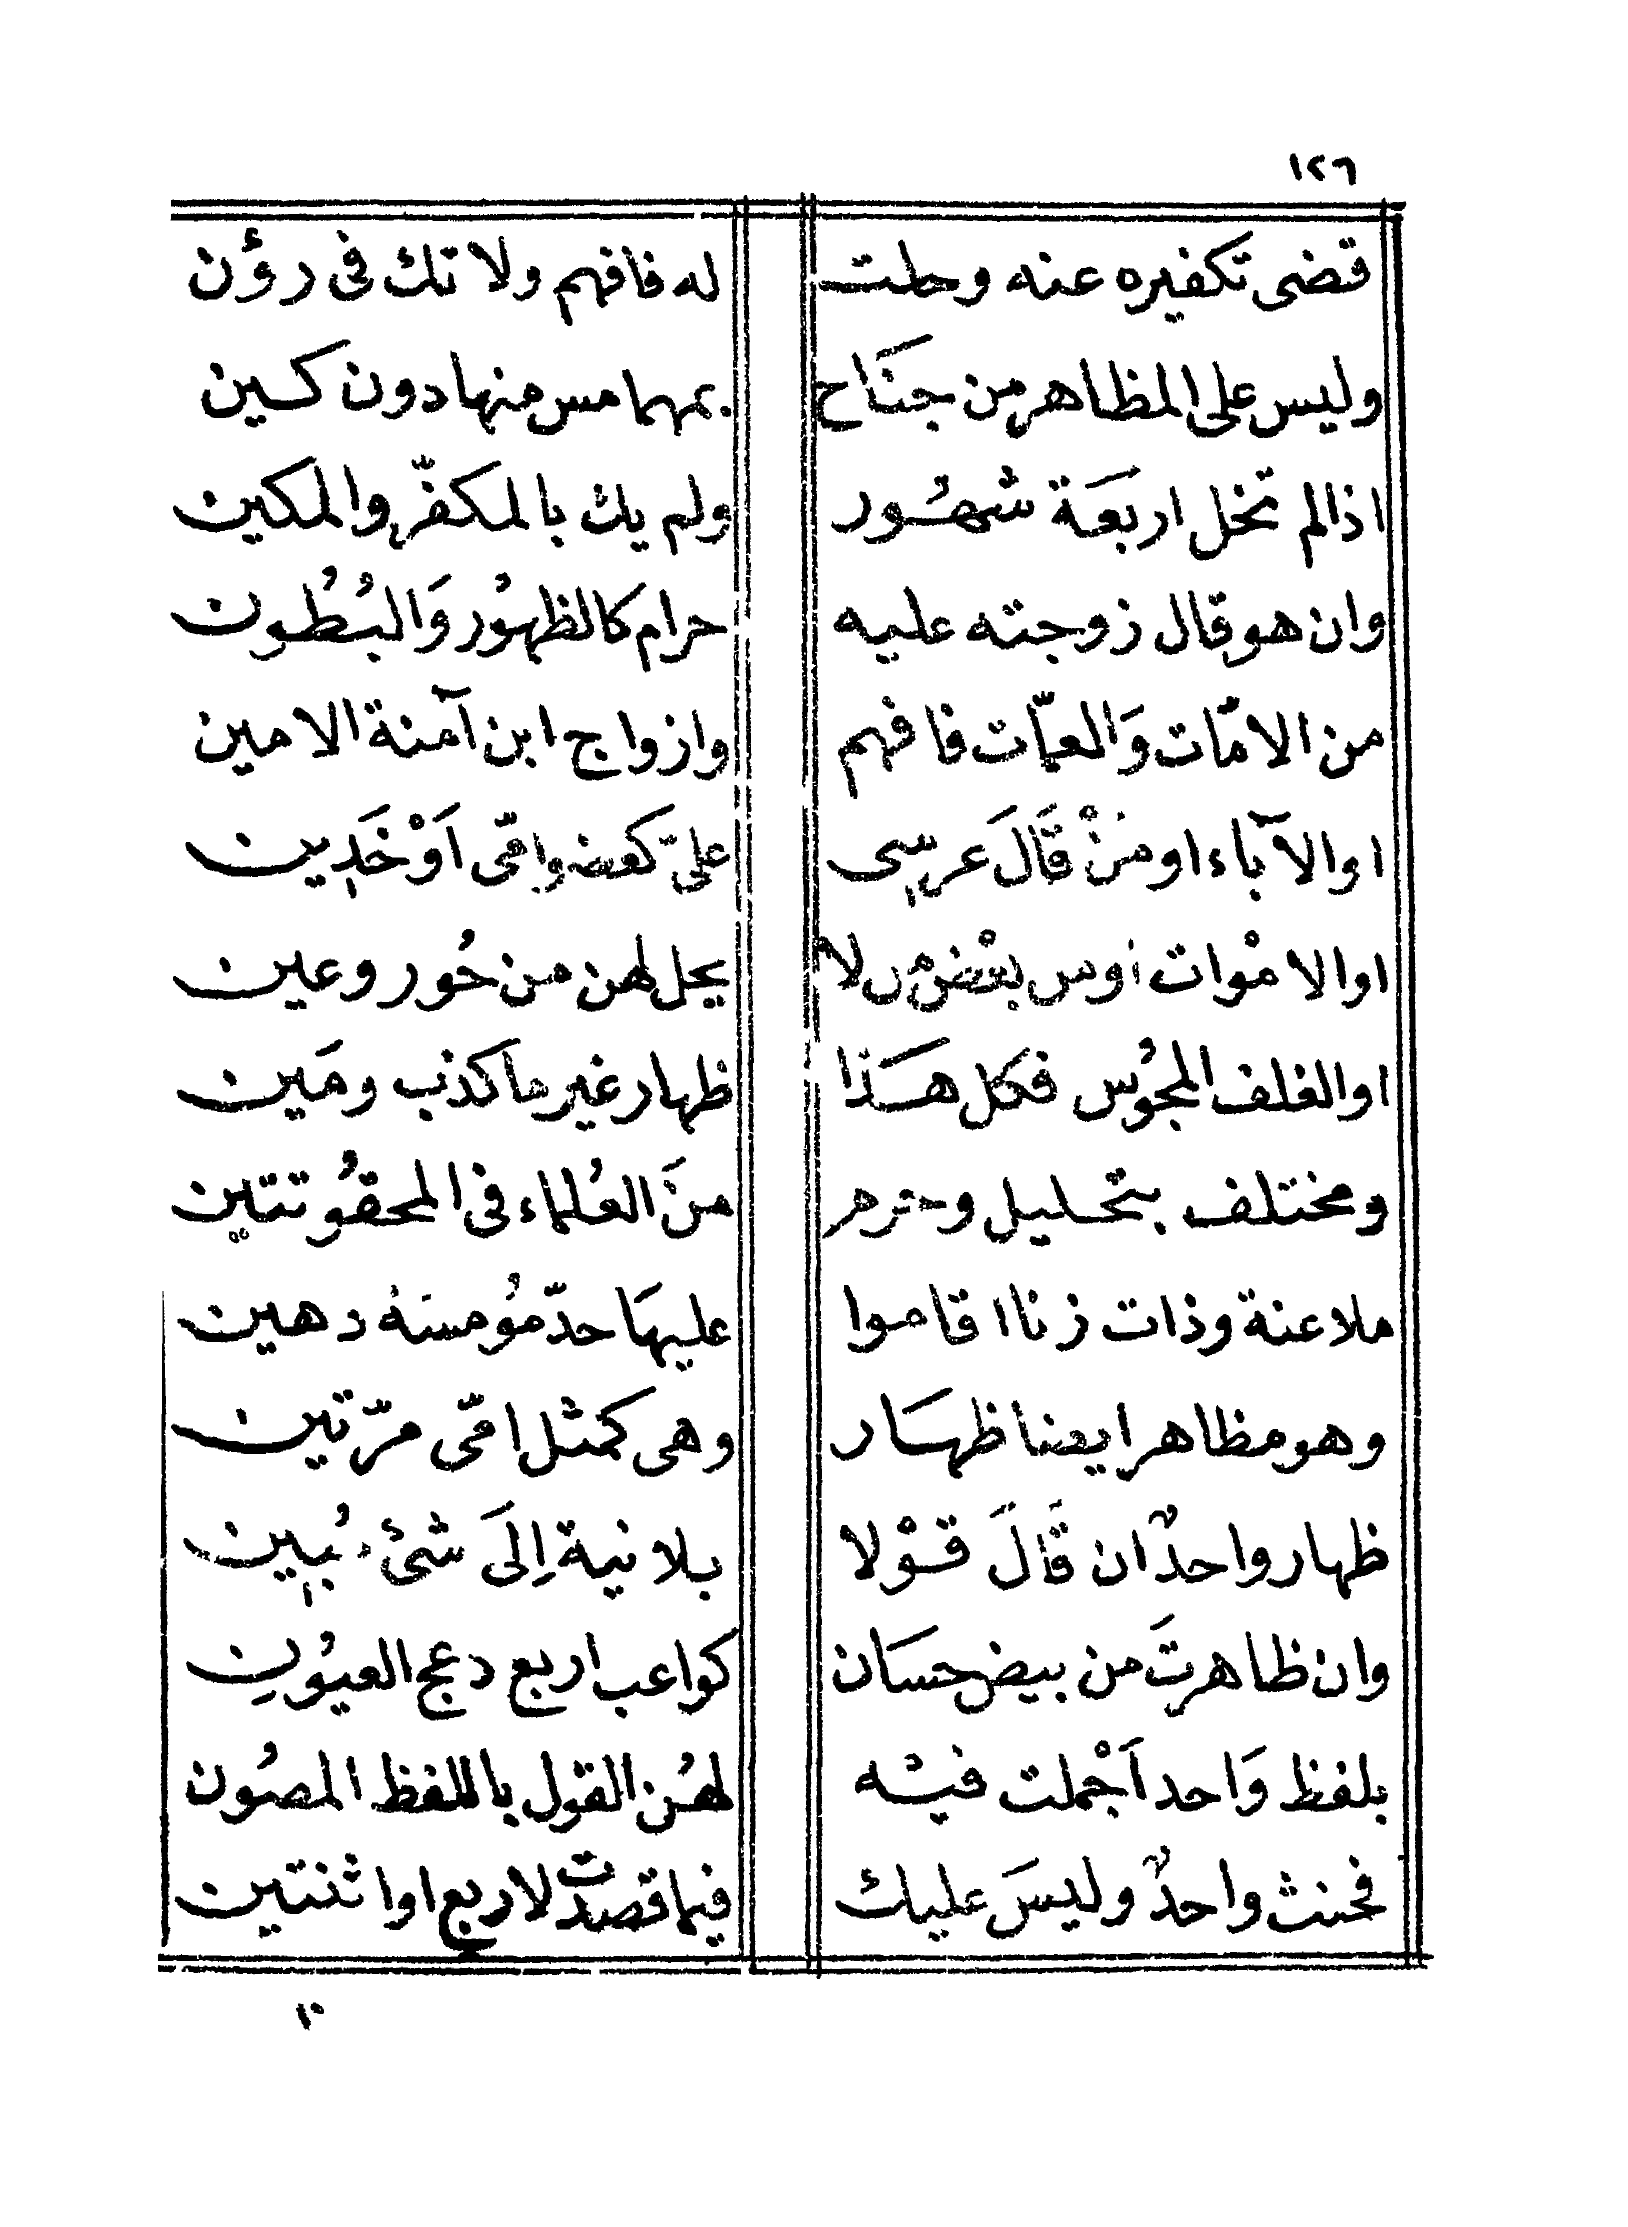 ١٢٦
قضى تكفيره عنه وحلت له فافهم ولا تك فى رؤن
وليس على المظاهر من جنَاح بمهما مس منها دون كين
اذا لم تخل اربعَة شهُور ولم يك بالمكفّر والمكين
وان هو قال زوجته عليه حرام كالظهُور وَالبُطُون
من الامّات وَالعمّات فافهم وازواج ابن آمنة الامين
اوالآباء او منْ قَالَ عرسِى علىّ كعضه وامّى اَوْ خَدِين
اوالامْوات اومن بعْض من لا يحل لهن من حُور وعين
اوالغلف المجُوس فكل هَذا ظهار غير ما كذب ومَين
ومختلف بتحليل وحرم منَ العُلماء فى المحقُوتتين
ملاعنة وذات زنا اقاموا عليهَا حدّ مُومسَة دهين
وهو مظاهر ايضا ظهَار وهى كمثل امّى مرّتين
ظهار واحدٌ ان قَالَ قوْلا بلا نية اِلَى شئ مُبِين
وان ظاهرتَ من بيض حسَان كواعب اربع دعج العيُونِ
بلفظ وَاحد اَجْملت فيْه لهُن القول باللفظ المصُون
فحنث واحدٌ وليسَ عليك فيما قصدت لاربع او اثنتين
١٠